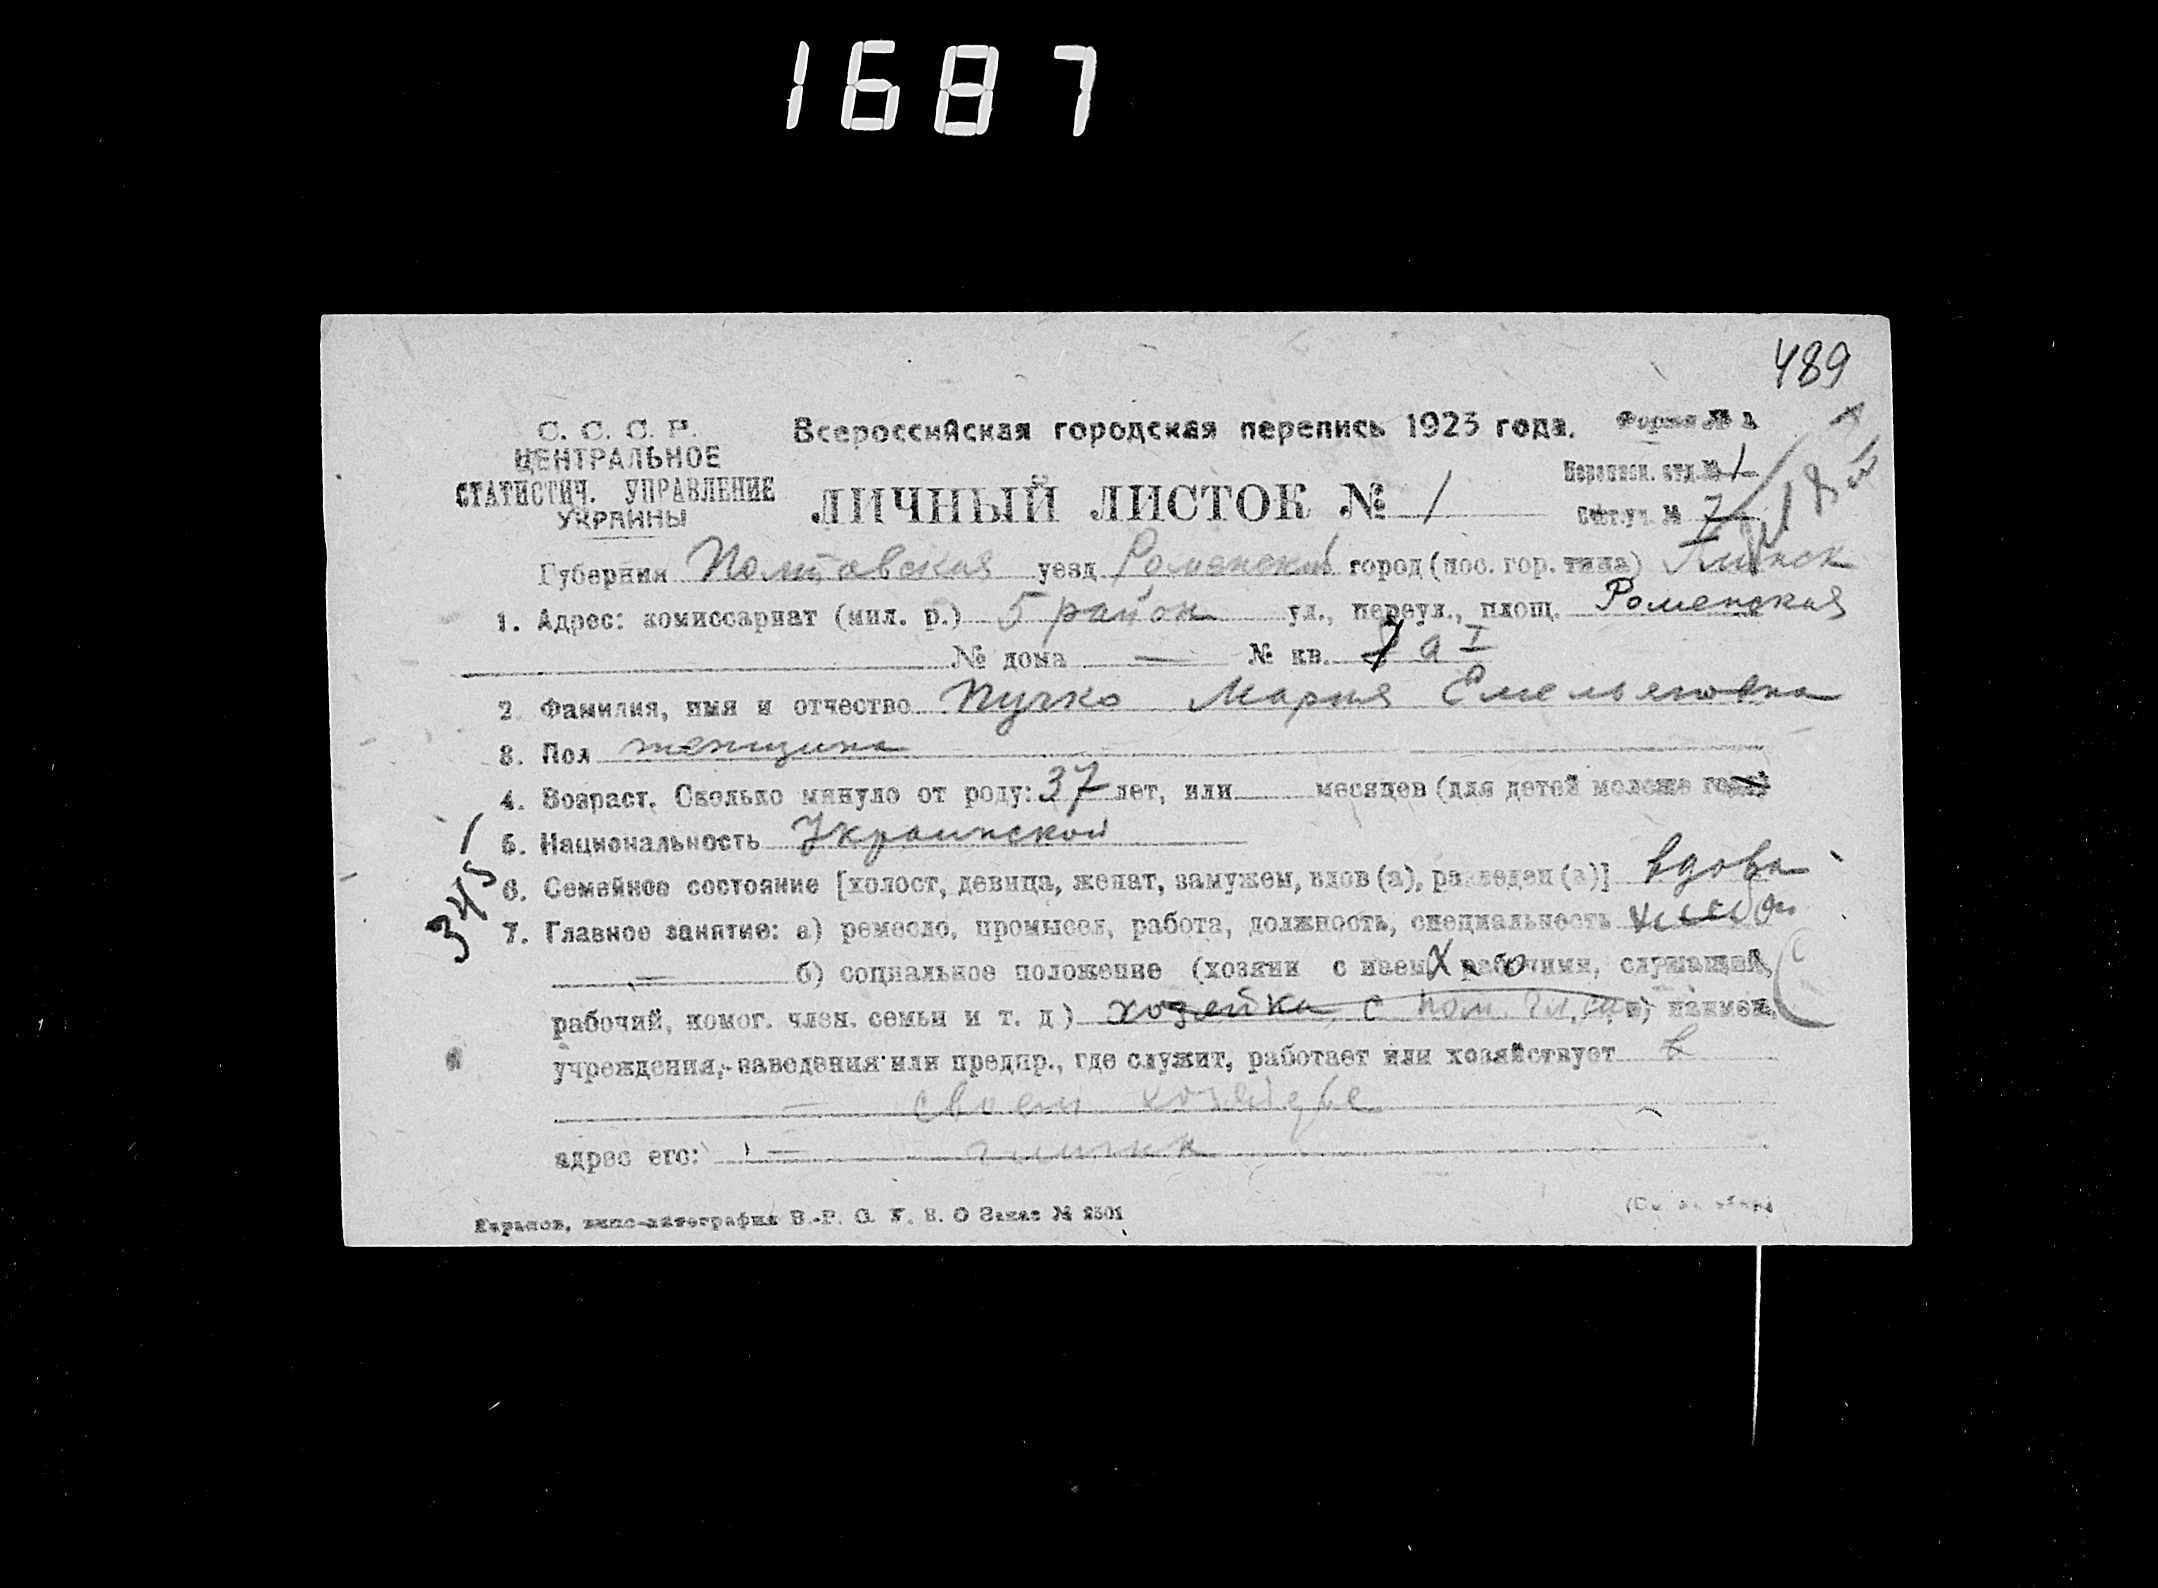 1687
489
С. С. С. Р.
ЦЕНТРАЛЬНОЕ
СТАТИСТИЧ. УПРАВЛЕНИЕ
УКРАИНЫ
Всероссийская городская перепись 1923 года.
Форма №
ЛИЧНЫЙ ЛИСТОК № 1
Переписн. отд. № 1
Счетч. уч. № 7
Губерния Полтавская уезд Роменский город (пос. гор. типа) Глинск
1. Адрес: комиссариат (мил. р.) 5 район ул., переул., площ. Роменская
№ дома — № кв. 7 а I
2. Фамилия, имя и отчество Пучко Мария Емельяновна
3. Пол женщина
4. Возраст. Сколько минуло от роду: 37 лет, или месяцев (для детей моложе года)
5. Национальность Украинской
345
6. Семейное состояние [холост, девица, женат, замужем, вдов (а), разведен (а)] вдова
7. Главное занятие: а) ремесло, промысел, работа, должность, специальность
б) социальное положение (хозяин с наемн. рабочими, служащий,
рабочий, помог. член. семьи и т. д) хозяйка с пом. чл. сем в) наимен.
учреждения, заведения или предпр., где служит, работает или хозяйствует в
своем хозяйстве
адрес его: Глинск
Харьков, типо-литография В. Р. С. У. В. О Заказ № 2501